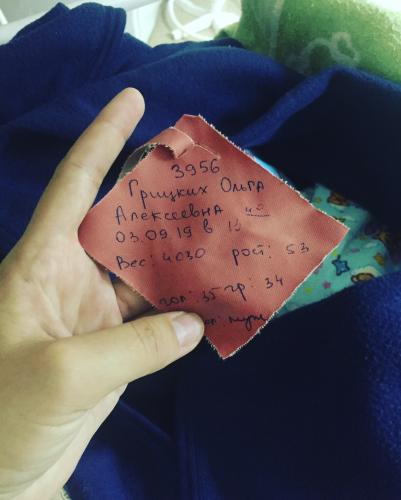 3956
Грицких Ольга
Алексеевна
03.09.19 в
Вес: 4030 рост: 53
гол: 35 гр: 34
пол: муж